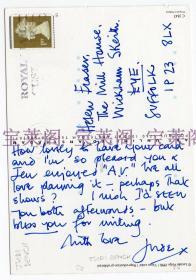 Helen Fraser,
The Mill House,
Wickham Skeith,
EYE,
SUFFOLK
IP23 8LX
How lovely to have your card
and I'm so pleased you &
Jen enjoyed "AV". We all
love
doing it – perhaps that
shows? I wish I'd seen
you both afterwards – but
bless you for writing.
With love
宝莱阁
宝莱阁
宝莱阁